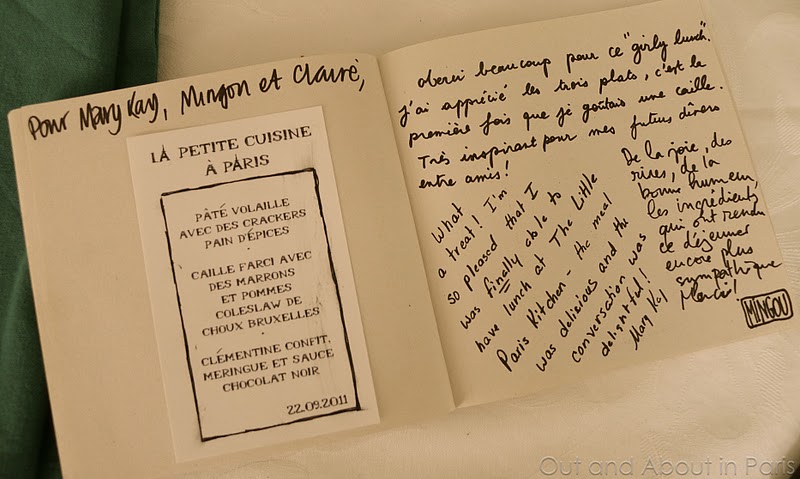 Pour Mary Kay, Mingou et Claire,
LA PETITE CUISINE
À PARIS
PÂTÉ VOLAILLE
AVEC DES CRACKERS
PAIN D'ÉPICES
CAILLE FARCI AVEC
DES MARRONS
ET POMMES
COLESLAW DE
CHOUX BRUXELLES
CLÉMENTINE CONFIT,
MERINGUE ET SAUCE
CHOCOLAT NOIR
22.09.2011
beaucoup pour ce "girly lunch".
J'ai apprécié les trois plats, c'est la
première fois que je goûtais une caille.
Très inspirant pour mes futurs dîners
entre amis!
What
a treat! I'm
so pleased that I
was finally able to
have lunch at The Little
Paris Kitchen - the meal
was delicious and the
conversation was
delightful!
Mary Kay
De la joie, des
rires, de la
bonne humeur,
les ingrédients
qui ont rendu
ce déjeuner
encore plus
sympathique
Merci!
MINGOU
Out and About in Paris